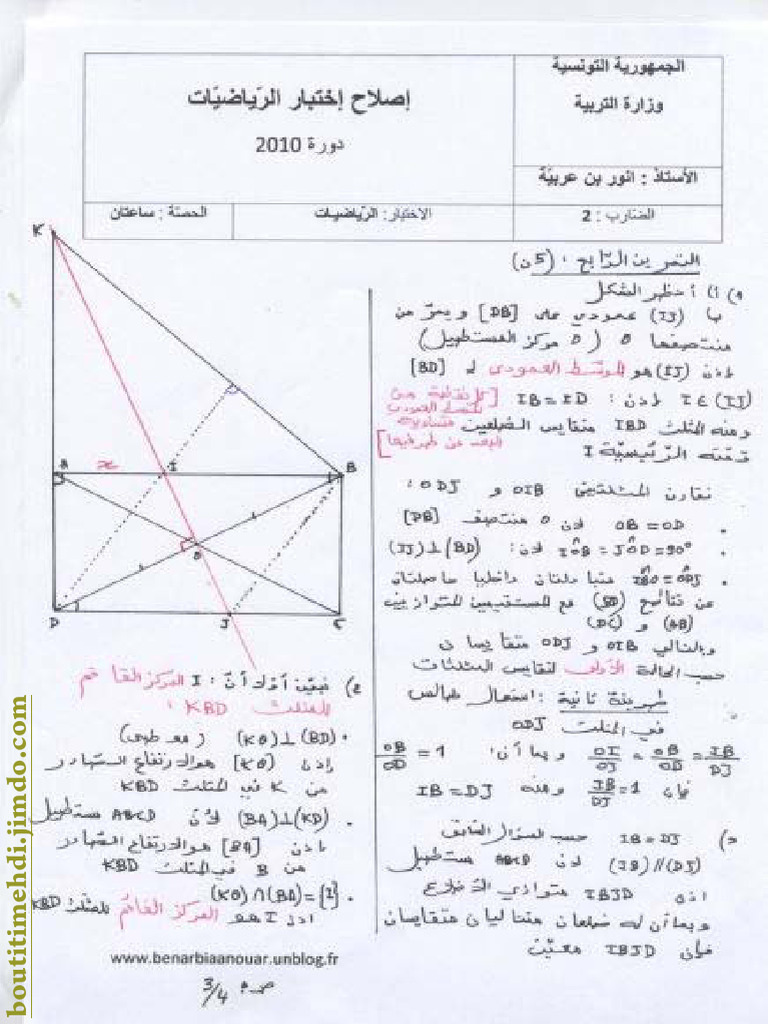 الجمهورية التونسية
وزارة التربية
إصلاح إختبار الرّياضيّات
دورة 2010
الأستاذ : انور بن عربيّة
الضارب : 2
الاختبار: الرّياضيات
الحصة : ساعتان
التمرين الرّابع : (5ن)
1) أ) أنظر الشكل
ب) (IJ) عمودي على [DB] و يمرّ من
منتصفها O (O مركز المستطيل)
إذن (IJ) هو الموسّط العمودي لـ [BD]
I ∈ (IJ) إذن : IB = ID [كل نقطة من
الموسط العمودي متساوية
البعد عن طرفيها]
ومنه المثلث IBD متقايس الضلعين
قمته الرّئيسيّة I
نقارن المثلثين OIB و ODJ :
. OB = OD لأن O منتصف [DB]
. IÔB = JÔD = 90° لأن: (IJ)⊥(BD)
. IB̂O = OD̂J متبادلتان داخليا حاصلتان
عن تقاطع (BD) مع المستقيمين المتوازيين
(AB) و (DC)
وبالتالي OIB و ODJ متقايسان
حسب الحالة الأولى لتقايس المثلثات
طريقة ثانية : استعمال طالس
في المثلث ODJ
OI/OJ = OB/OD = IB/DJ و بما أن: OB/OD = 1
فإن IB/DJ = 1 ومنه IB = DJ
د) IB = DJ حسب السؤال السابق
(IB) // (DJ) لأن ABCD مستطيل
إذن IBJD متوازي الأضلاع
و بما أن له ضلعان متتاليان متقايسان
فإن IBJD معيّن
K
A x I B
O
D J C
2) نبيّن أولا أنّ : I المركز القائم
للمثلث KBD :
. (KO)⊥(BD) (معطى)
إذن [KO] هو الارتفاع الصادر
من K في المثلث KBD
. (BA)⊥(KD) لأنّ ABCD مستطيل
إذن [BA] هو الارتفاع الصادر
من B في المثلث KBD
. (KO)∩(BA)={I}
إذن I هو المركز القائم للمثلث KBD
www.benarbiaanouar.unblog.fr
ص 3/4
boutitimehdi.jimdo.com